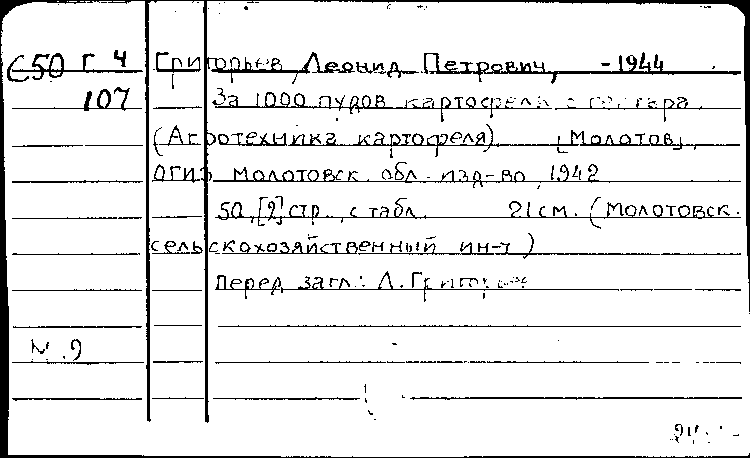 С50 Г 4 Григорьев, Леонид Петрович, -1944
107 За 1000 пудов картофеля с гектара.
(Агротехника картофеля). [Молотов],
ОГИЗ Молотовск. обл. изд-во, 1942
50, [2] стр., с табл. 21 см. (Молотовск.
сельскохозяйственный ин-т)
Перед загл.: Л. Григорьев
М.9